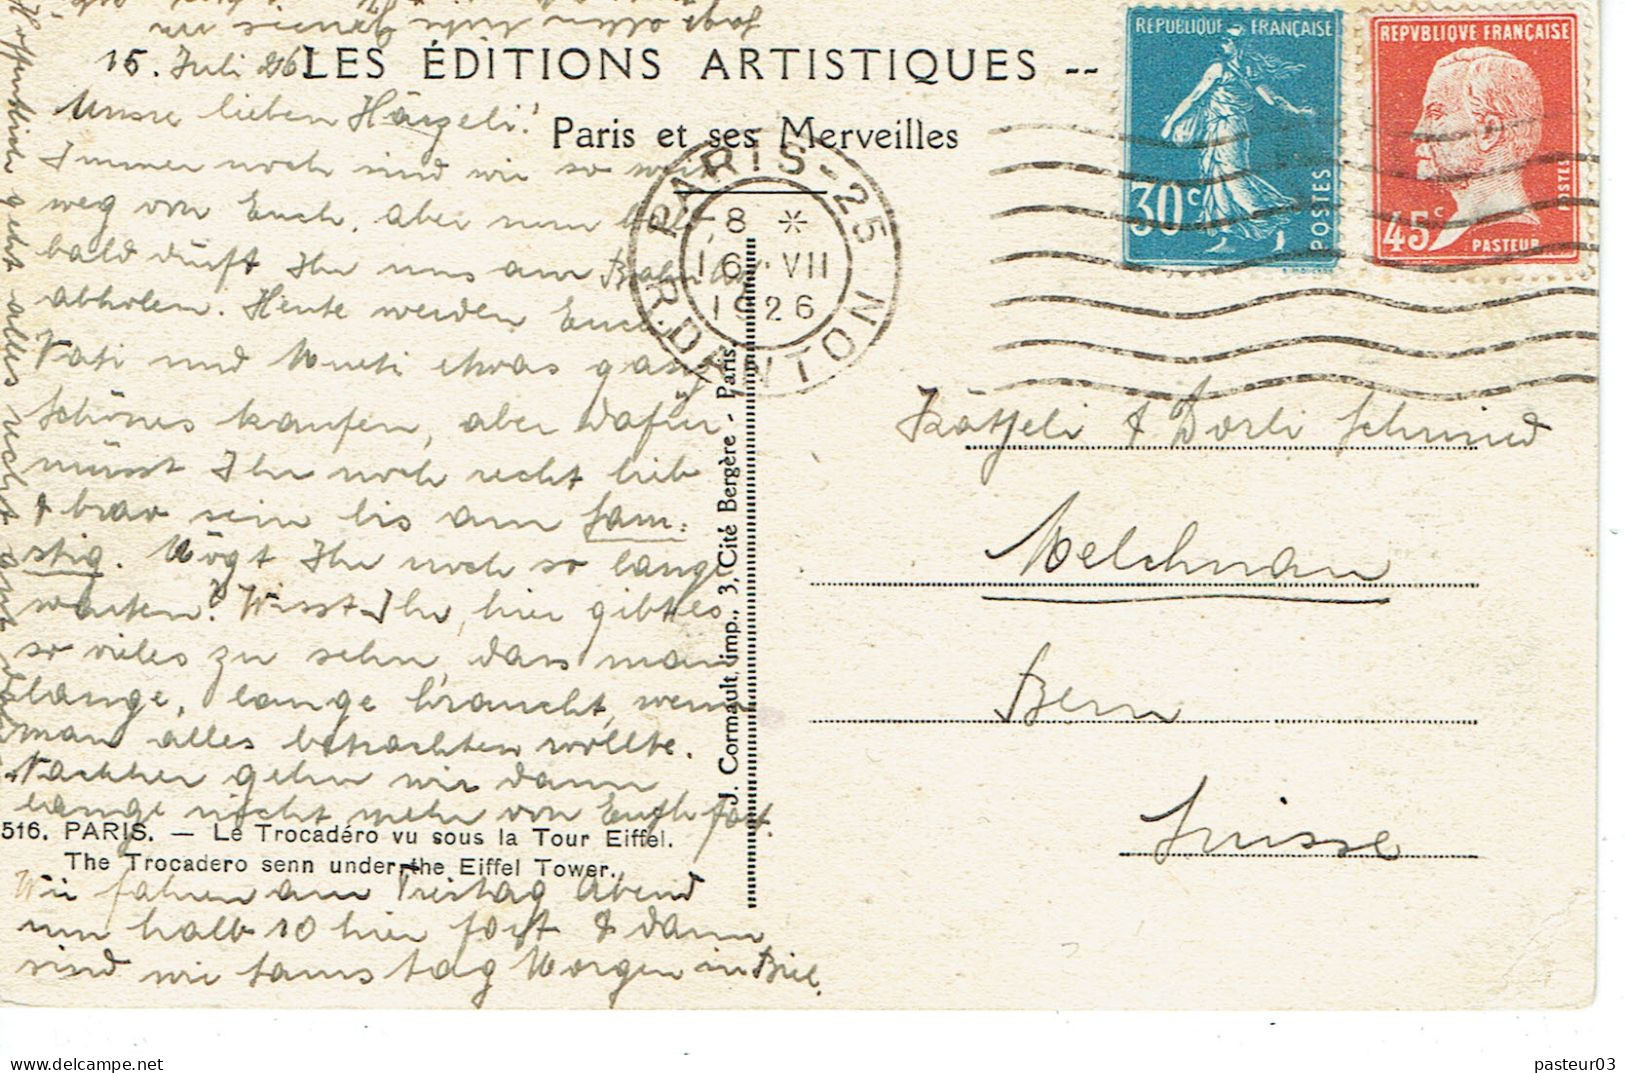 LES ÉDITIONS ARTISTIQUES --
Paris et ses Merveilles
15. Juli 26.
Unsere lieben
Immer noch sind wir so weit
weg von Euch, aber nun
bald dürft Ihr uns am Bahnhof
abholen. Heute werden Euch
Vati und Mueti etwas ganz
schönes kaufen, aber dafür
müsst Ihr noch recht lieb
& brav sein bis am Sam-
stig. Mögt Ihr noch so lange
warten? Wisst Ihr, hier gibt es
so vieles zu sehn, dass man
lange, lange braucht, wenn
man alles betrachten wollte.
Nachher gehn wir dann
lange nicht mehr von Euch fort.
516. PARIS. — Le Trocadéro vu sous la Tour Eiffel.
The Trocadero senn under the Eiffel Tower.
Wir fahren am Freitag Abend
um halb 10 hier fort & dann
sind wir Samstag Morgen in Biel.
Hoffentlich geht alles recht gut
J. Cormault, imp., 3, Cité Bergère - Paris
PARIS-25
R. DANTON
8 *
16 · VII
1926
REPUBLIQUE FRANÇAISE
30c
POSTES
REPVBLIQUE FRANÇAISE
45c
PASTEUR
POSTES
& Dorli Schmid
Melchnau
Bern
Suisse
pasteur03